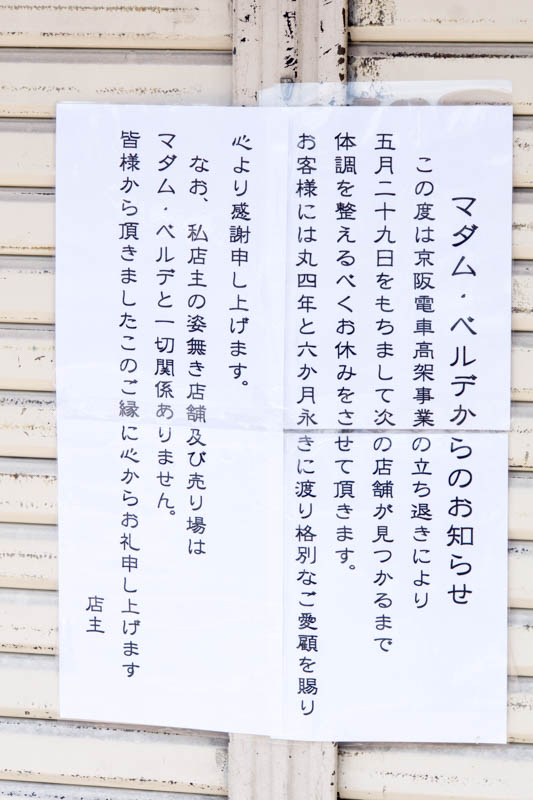 マダム・ベルデからのお知らせ
この度は京阪電車高架事業の立ち退きにより
五月二十九日をもちまして次の店舗が見つかるまで
体調を整えるべくお休みをさせて頂きます。
お客様には丸四年と六か月永きに渡り格別なご愛顧を賜り
心より感謝申し上げます。
なお、私店主の姿無き店舗及び売り場は
マダム・ベルデと一切関係ありません。
皆様から頂きましたこのご縁に心からお礼申し上げます
店主